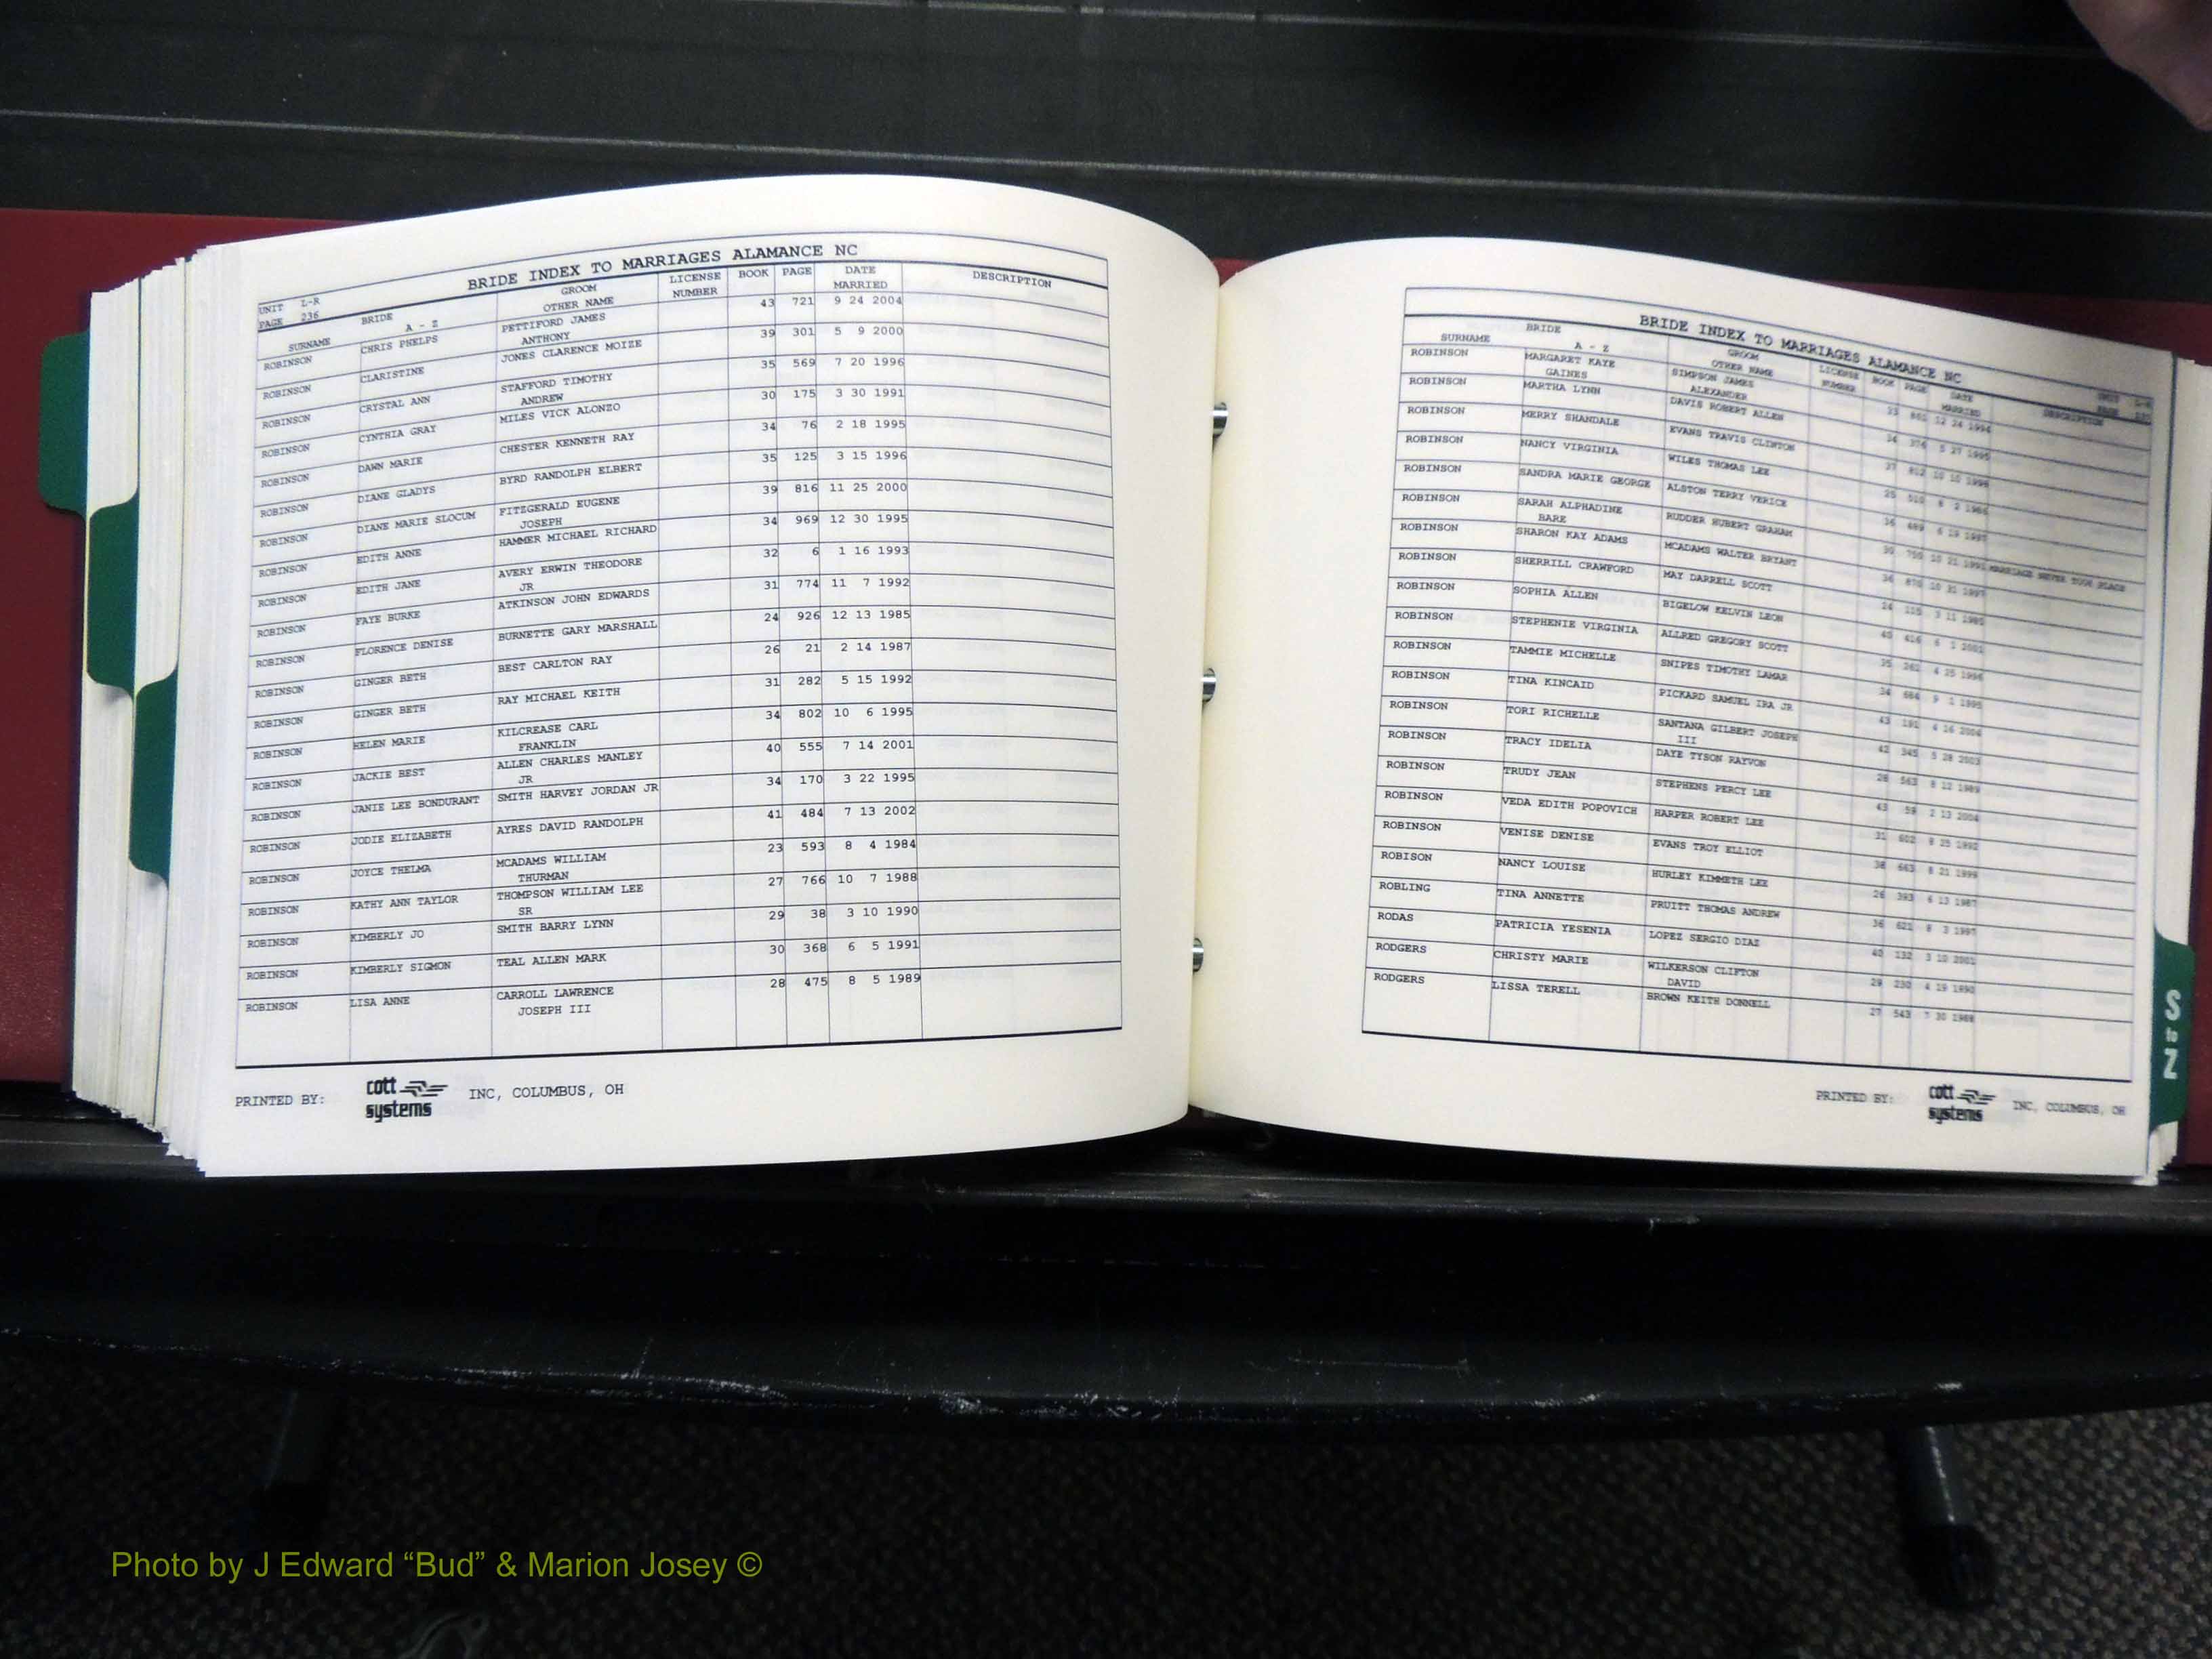 UNIT L-R
PAGE 236
BRIDE INDEX TO MARRIAGES ALAMANCE NC
SURNAME BRIDE A - Z GROOM OTHER NAME LICENSE NUMBER BOOK PAGE DATE MARRIED DESCRIPTION
ROBINSON CHRIS PHELPS PETTIFORD JAMES 43 721 9 24 2004
ANTHONY
ROBINSON CLARISTINE JONES CLARENCE MOIZE 39 301 5 9 2000
ROBINSON CRYSTAL ANN STAFFORD TIMOTHY 35 569 7 20 1996
ANDREW
ROBINSON CYNTHIA GRAY MILES VICK ALONZO 30 175 3 30 1991
ROBINSON DAWN MARIE CHESTER KENNETH RAY 34 76 2 18 1995
ROBINSON DIANE GLADYS BYRD RANDOLPH ELBERT 35 125 3 15 1996
ROBINSON DIANE MARIE SLOCUM FITZGERALD EUGENE 39 816 11 25 2000
JOSEPH
ROBINSON EDITH ANNE HAMMER MICHAEL RICHARD 34 969 12 30 1995
ROBINSON EDITH JANE AVERY ERWIN THEODORE 32 6 1 16 1993
JR
ROBINSON FAYE BURKE ATKINSON JOHN EDWARDS 31 774 11 7 1992
ROBINSON FLORENCE DENISE BURNETTE GARY MARSHALL 24 926 12 13 1985
ROBINSON GINGER BETH BEST CARLTON RAY 26 21 2 14 1987
ROBINSON GINGER BETH RAY MICHAEL KEITH 31 282 5 15 1992
ROBINSON HELEN MARIE KILCREASE CARL 34 802 10 6 1995
FRANKLIN
ROBINSON JACKIE BEST ALLEN CHARLES MANLEY 40 555 7 14 2001
JR
ROBINSON JANIE LEE BONDURANT SMITH HARVEY JORDAN JR 34 170 3 22 1995
ROBINSON JODIE ELIZABETH AYRES DAVID RANDOLPH 41 484 7 13 2002
ROBINSON JOYCE THELMA MCADAMS WILLIAM 23 593 8 4 1984
THURMAN
ROBINSON KATHY ANN TAYLOR THOMPSON WILLIAM LEE 27 766 10 7 1988
SR
ROBINSON KIMBERLY JO SMITH BARRY LYNN 29 38 3 10 1990
ROBINSON KIMBERLY SIGMON TEAL ALLEN MARK 30 368 6 5 1991
ROBINSON LISA ANNE CARROLL LAWRENCE 28 475 8 5 1989
JOSEPH III
PRINTED BY: cott systems INC, COLUMBUS, OH
BRIDE INDEX TO MARRIAGES ALAMANCE NC
SURNAME BRIDE A - Z GROOM OTHER NAME LICENSE NUMBER BOOK PAGE DATE MARRIED DESCRIPTION
ROBINSON MARGARET KAYE SIMPSON JAMES
GAINES ALEXANDER
ROBINSON MARTHA LYNN DAVIS ROBERT ALLEN
ROBINSON MERRY SHANDALE EVANS TRAVIS CLINTON
ROBINSON NANCY VIRGINIA WILES THOMAS LEE
ROBINSON SANDRA MARIE GEORGE ALSTON TERRY VERICE
ROBINSON SARAH ALPHADINE RUDDER HUBERT GRAHAM MARRIAGE NEVER TOOK PLACE
BARE
ROBINSON SHARON KAY ADAMS MCADAMS WALTER BRYANT
ROBINSON SHERRILL CRAWFORD MAY DARRELL SCOTT
ROBINSON SOPHIA ALLEN BIGELOW KELVIN LEON
ROBINSON STEPHENIE VIRGINIA ALLRED GREGORY SCOTT
ROBINSON TAMMIE MICHELLE SNIPES TIMOTHY LAMAR
ROBINSON TINA KINCAID PICKARD SAMUEL IRA JR
ROBINSON TORI RICHELLE SANTANA GILBERT JOSEPH
III
ROBINSON TRACY IDELIA DAYE TYSON RAYVON
ROBINSON TRUDY JEAN STEPHENS PERCY LEE
ROBINSON VEDA EDITH POPOVICH HARPER ROBERT LEE
ROBINSON VENISE DENISE EVANS TROY ELLIOT
ROBISON NANCY LOUISE HURLEY KIMMETH LEE
ROBLING TINA ANNETTE PRUITT THOMAS ANDREW
RODAS PATRICIA YESENIA LOPEZ SERGIO DIAZ
RODGERS CHRISTY MARIE WILKERSON CLIFTON
DAVID
RODGERS LISSA TERELL BROWN KEITH DONNELL
PRINTED BY: cott systems INC, COLUMBUS, OH
S to Z
Photo by J Edward “Bud” & Marion Josey ©